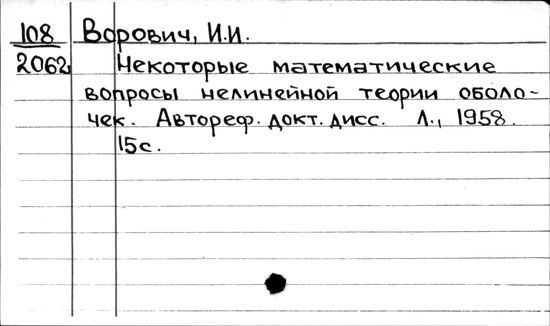 108 Ворович, И.И.
2062 Некоторые математические
вопросы нелинейной теории оболо-
чек. Автореф. докт. дисс. Л., 1958.
15с.